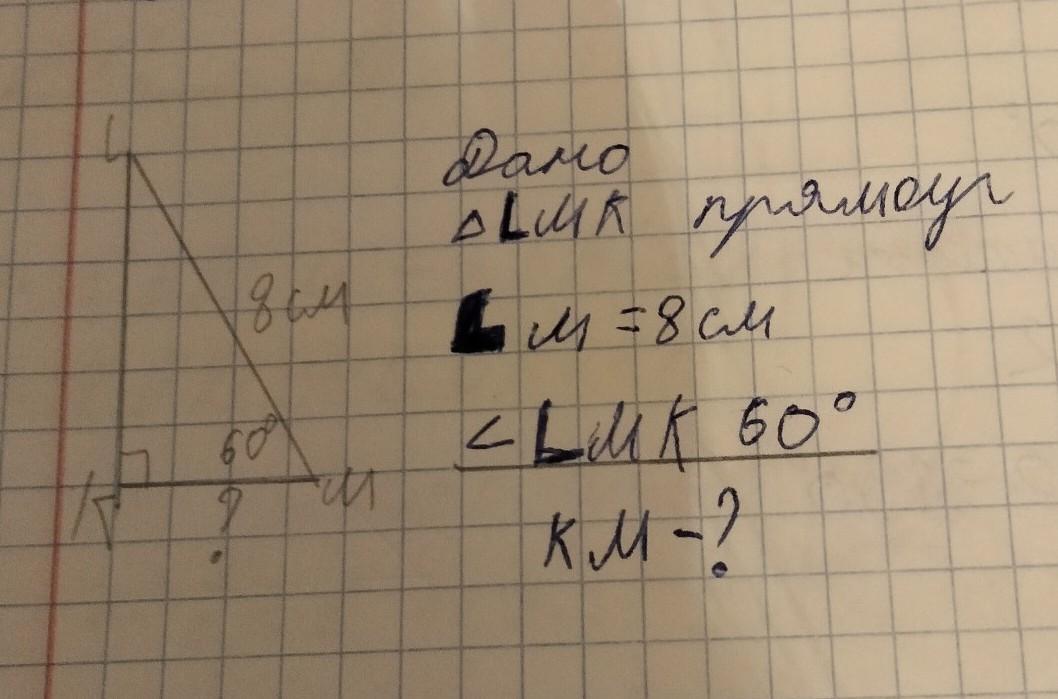 L
8 см
60°
K
?
М
Дано
△LMK прямоуг
Lм = 8 см
<LMK 60°
KM - ?